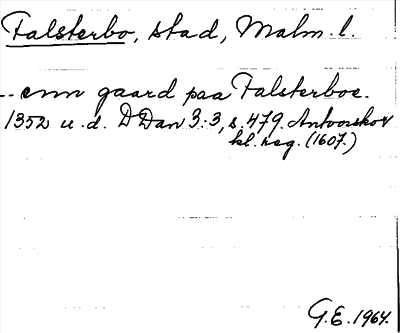 Falsterbo, stad, Malm. l.
.. enn gaard paa Falsterboe.
1352 u. d. DDan 3:3, s. 479. Antvorskov
kl. reg. (1607.)
G.E. 1964.